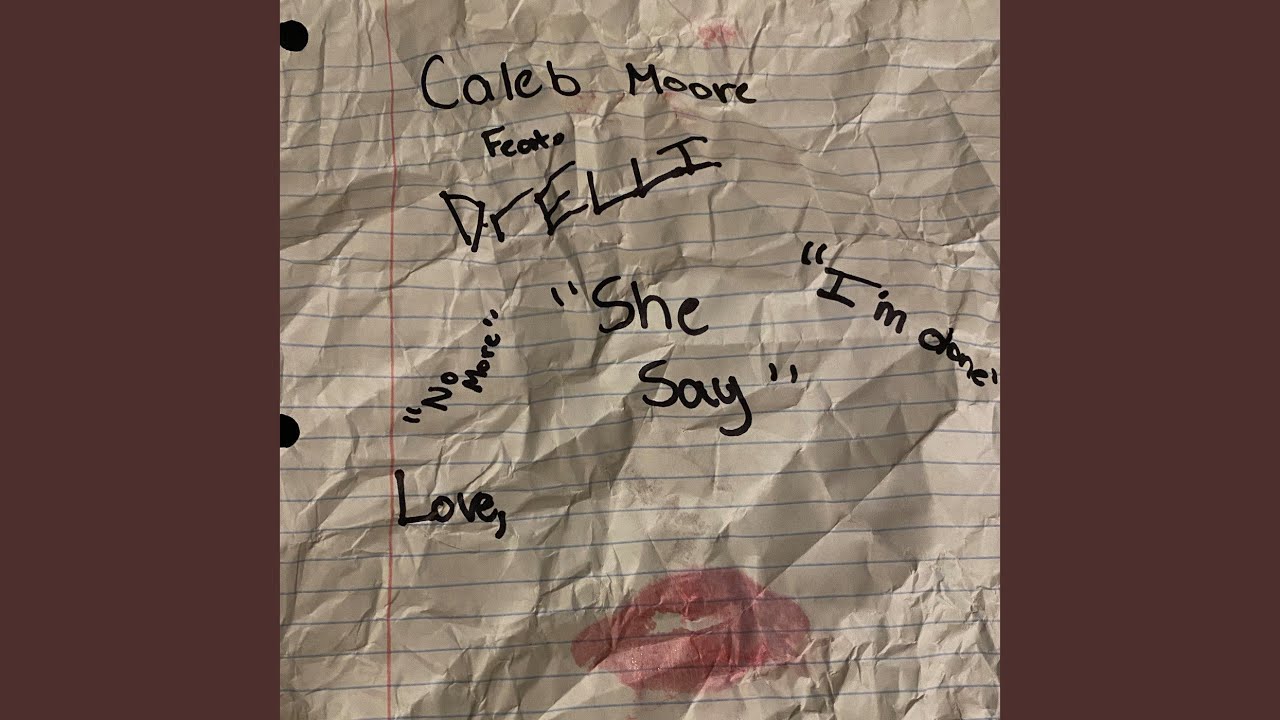 Caleb Moore
Feat.
DrELLI
"She
Say"
"I'm done"
"No
More"
Love,